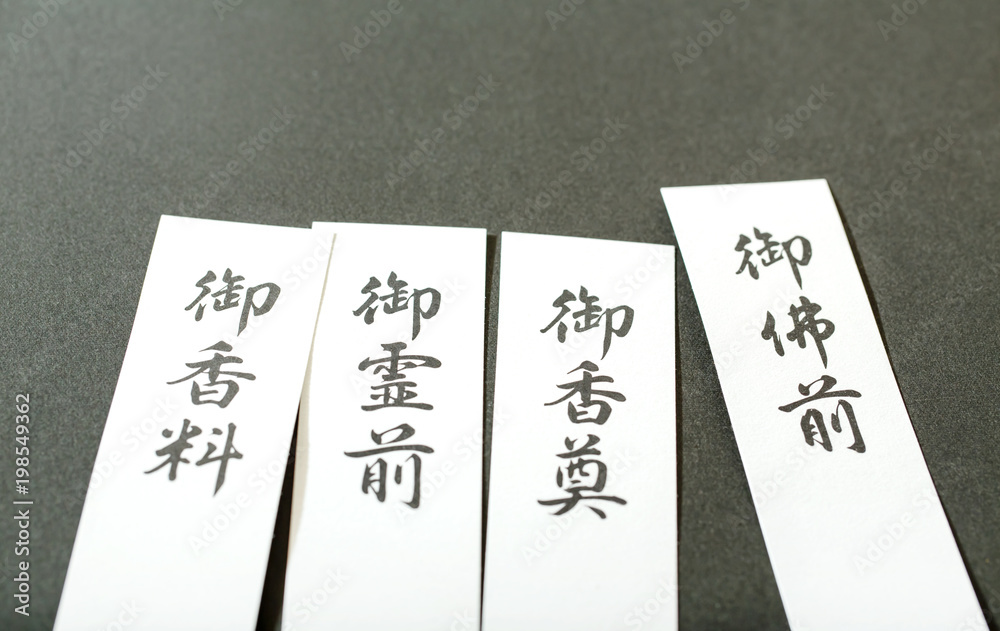 御香料
御霊前
御香奠
御佛前
Adobe Stock | #198549362
Adobe Stock